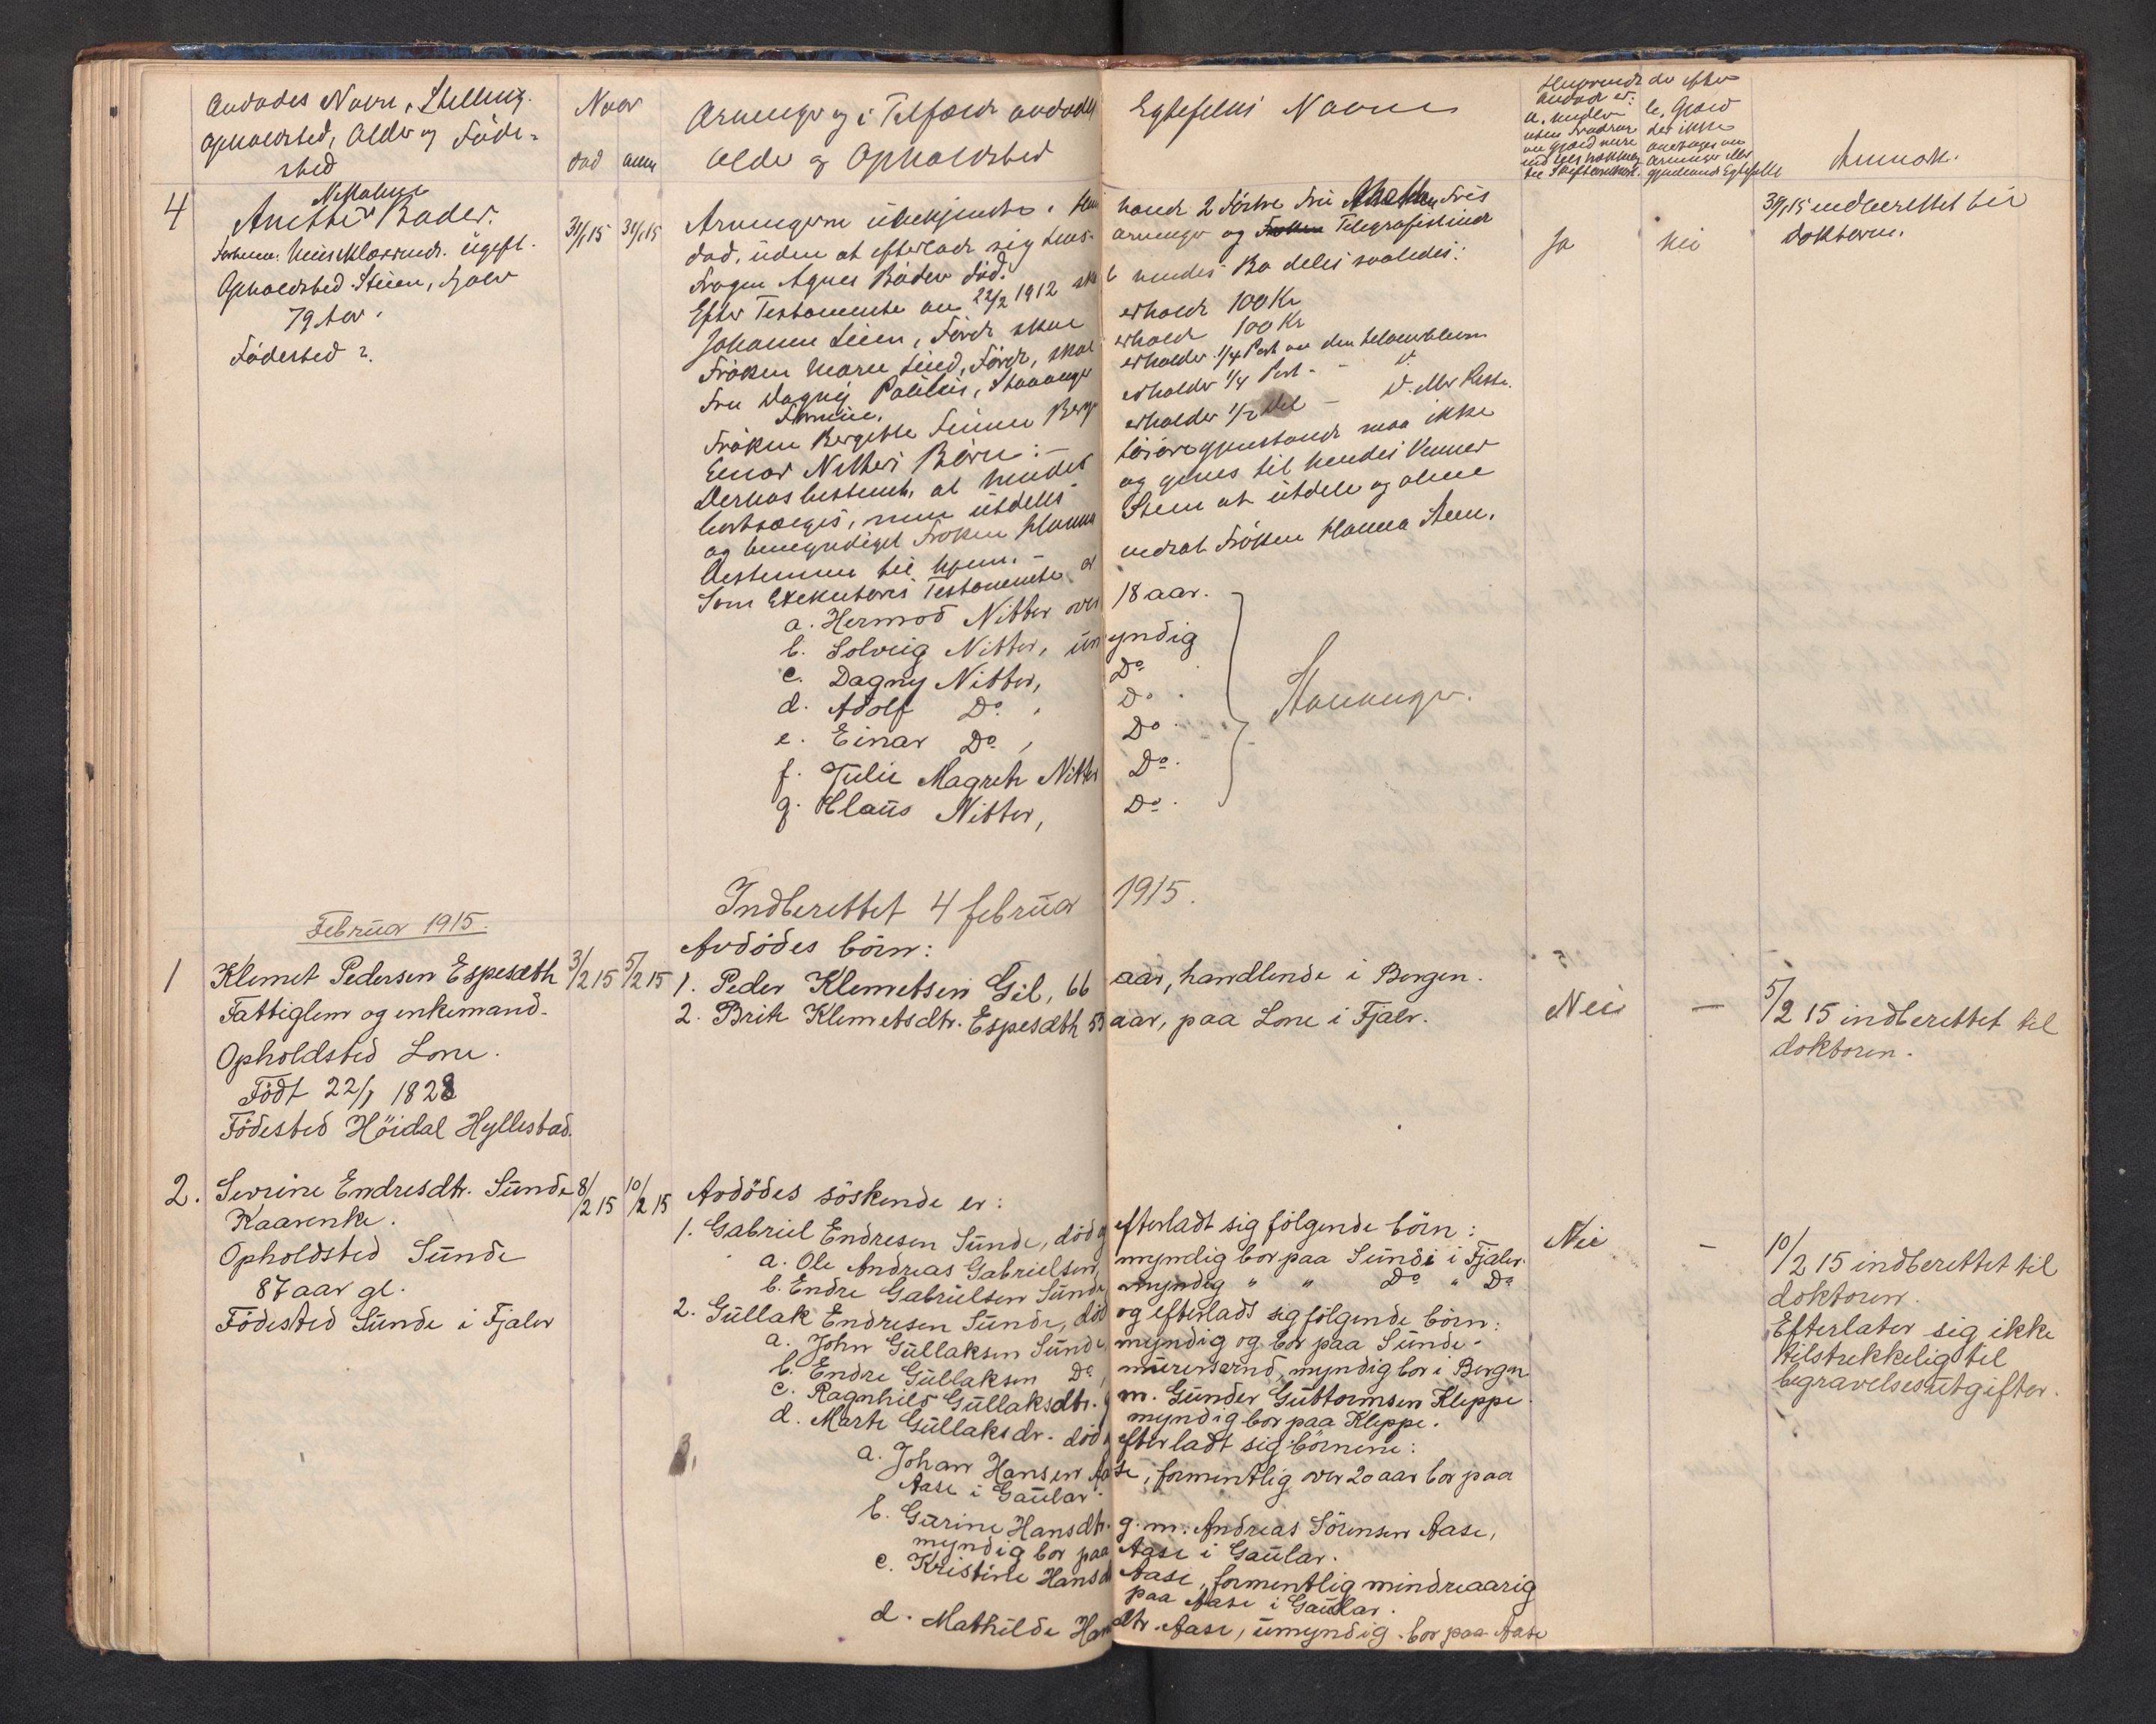 Avdødes Navn, Stilling.
Opholdssted, Alder og Føde-
sted
Naar
død anm
Arvinger og i Tilfælde avdødes
Alder og Opholdssted
Egtefelles Navn
Anmerk.
4
Anette Bader.
ugift.
Opholdssted Steien, Fjaler
79 Aar.
Fødested ?.
31/1 15 31/1 15
Arvingerne ubekjendte.
død, uden at efterlade sig
Arvinger og Telegrafistinde
Frøken Agnes Bader død.
Efter Testamente av 22/2 1912 skal hendes Bo deles saaledes:
Johanne Lien, Førde skal erholde 100 Kr
Frøken Maren Lind, Førde, skal erholde 100 Kr
Fru Dagny Paulus, Stavanger erholder 1/4 Part av den
Frøken Bergette Finne Berg erholder 1/4 Part - - d.
Einar Nitters Børn :- erholder 1/2 Del - d. eller Resten.
Dernæst bestemt, at hendes løsøregjenstande maa ikke
bortsælges, men utdeles og gives til hendes Venner
og bemyndiget Frøken Hanna Steen at utdele og alene
bestemme til hvem.-
Som Exekutoris Testamente er indsat Frøken Hanna Steen.
a. Hermod Nitter over 18 aar.
b. Solveig Nitter, umyndig
c. Dagny Nitter, Do
d. Adolf Do. , Do.
e. Einar Do , Do
f. Julie Magrete Nitter Do.
g. Klaus Nitter, Do.
Stavanger.
Ja
Nei
31/1 15 indberettet til
doktoren.
Indberettet 4 februar 1915.
Februar 1915.
1 Klemet Pedersen Espesæth 3/2 15 5/2 15
Fattiglem og enkemand.
Opholdsted Lone.
Født 22/1 1828
Fødested Höidal Hyllestad.
Avdödes börn:
1. Peder Klemetsen Gil, 66 aar, handlende i Bergen.
2. Brite Klemetsdtr. Espesæth 53 aar, paa Lone i Fjaler.
Nei
—
5/2 15 indberettet til
doktoren.
2. Sevrine Endresdtr. Sunde 8/2 15 10/2 15
Kaarenke.
Opholdsted Sunde
87 aar gl.
Födested Sunde i Fjaler
Avdödes söskende er:
1. Gabriel Endresen Sunde, död og efterladt sig fölgende börn:
a. Ole Andreas Gabrielsen, myndig bor paa Sunde i Fjaler.
b. Endre Gabrielsen Sunde myndig " " Do " Do
2. Gullak Endresen Sunde, död og efterladt sig fölgende börn:
a. John Gullaksen Sunde, myndig og bor paa Sunde.
b. Endre Gullaksen Do, murersvend, myndig bor i Bergen
c. Ragnhild Gullaksdtr. g m. Gunder Guttormsen Kleppe.
myndig bor paa Kleppe.
d. Marte Gullaksdr. död efterladt sig börnene:
a. Johan Hansen Aase, formentlig over 20 aar bor paa
Aase i Gaular.
b. Gurine Hansdtr. g.m. Andreas Sörensen Aase,
myndig bor paa Aase i Gaular.
c. Kristine Hansd Aase, formentlig mindreaarig
paa Aase i Gaular.
d. Mathilde Hansdtr. Aase, umyndig. bor paa Aase
Nei
—
10/2 15 indberettet til
doktoren.
Efterlater sig ikke
tilstrekkelig til
begravelsesutgifter.